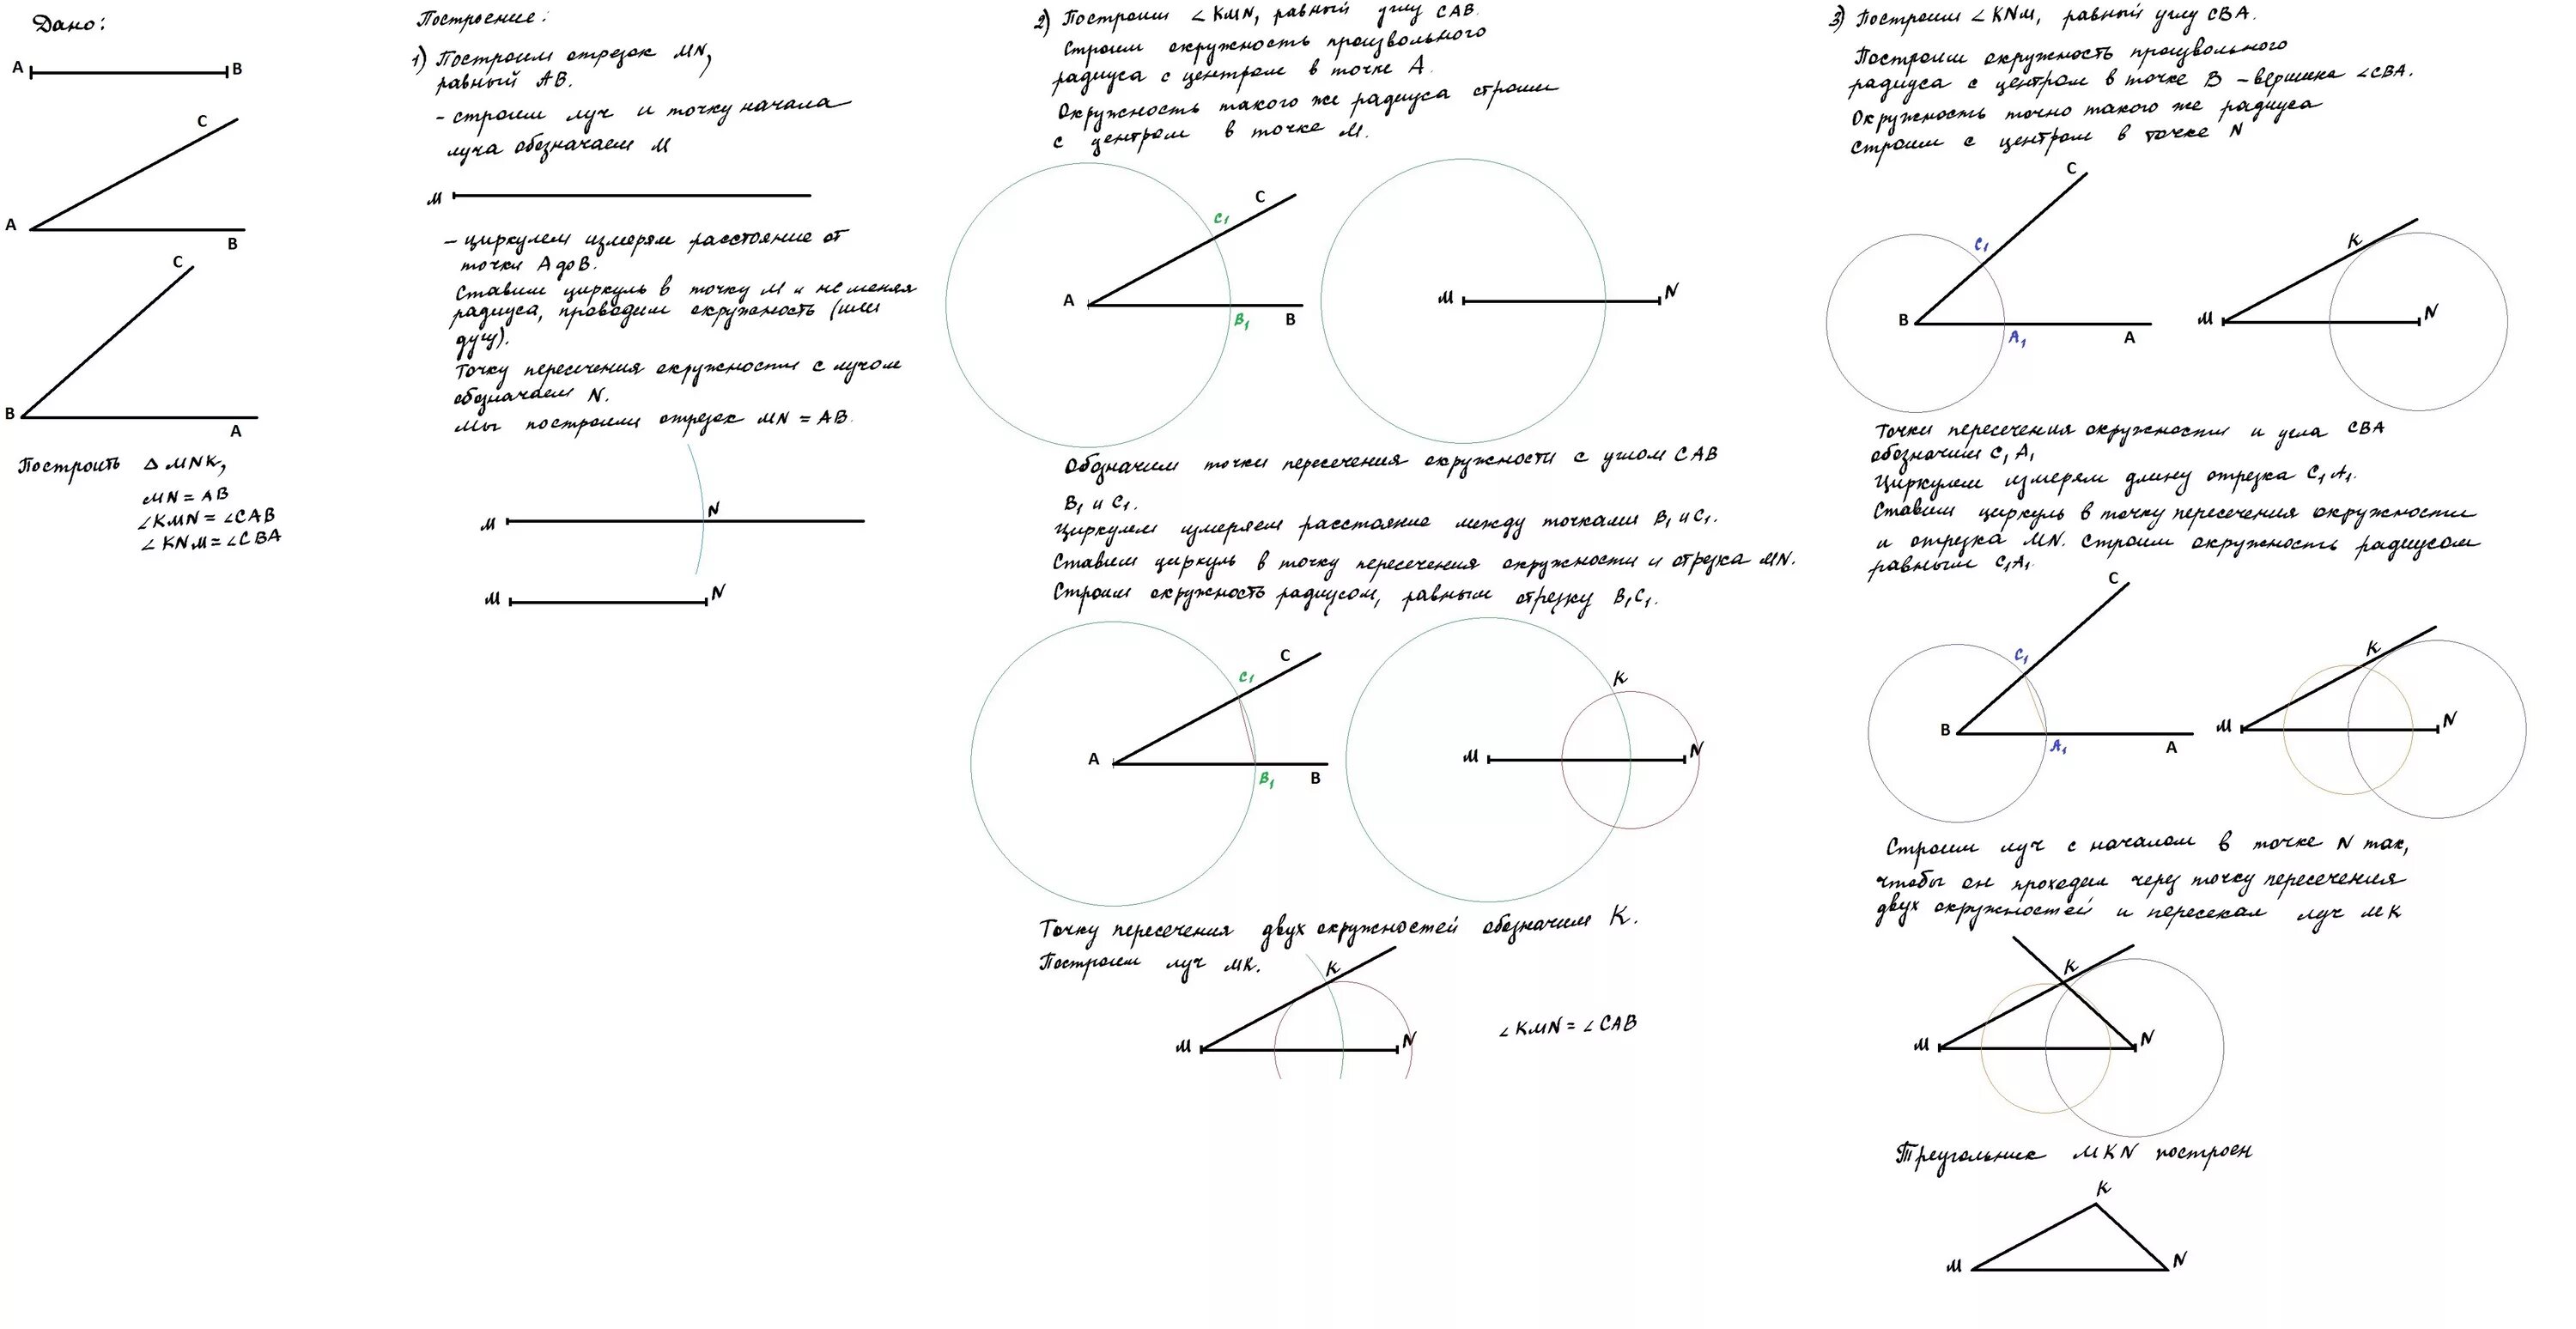 Дано:
A B
C
A B
C
B A
Построить Δ MNK,
MN = AB
∠KMN = ∠CAB
∠KNM = ∠CBA
Построение:
1) Построим отрезок MN,
равный AB.
- строим луч и точку начала
луча обозначаем M
M
- циркулем измеряем расстояние от
точки A до B.
Ставим циркуль в точку M и не меняя
радиуса, проводим окружность (или
дугу).
Точку пересечения окружности с лучом
обозначаем N.
Мы построили отрезок MN = AB.
M N
M N
2) Построим ∠KMN, равный углу CAB.
Строим окружность произвольного
радиуса с центром в точке A.
Окружность такого же радиуса строим
с центром в точке M.
C
C1
A B1 B
M N
Обозначим точки пересечения окружности с углом CAB
B1 и C1.
Циркулем измеряем расстояние между точками B1 и C1.
Ставим циркуль в точку пересечения окружности и отрезка MN.
Строим окружность радиусом, равным отрезку B1C1.
C
C1
A B1 B
K
M N
Точку пересечения двух окружностей обозначим K.
Построим луч MK.
K
M N
∠KMN = ∠CAB
3) Построим ∠KNM, равный углу CBA.
Построим окружность произвольного
радиуса с центром в точке B - вершина ∠CBA.
Окружность точно такого же радиуса
строим с центром в точке N
C
C1
B A1 A
K
M N
Точки пересечения окружности и угла CBA
обозначим C1 A1
Циркулем измерям длину отрезка C1A1.
Ставим циркуль в точку пересечения окружности
и отрезка MN. Строим окружность радиусом
равным C1A1.
C
C1
B A1 A
K
M N
Строим луч с началом в точке N так,
чтобы он проходил через точку пересечения
двух окружностей и пересекал луч MK
K
M N
Треугольник MKN построен
K
M N